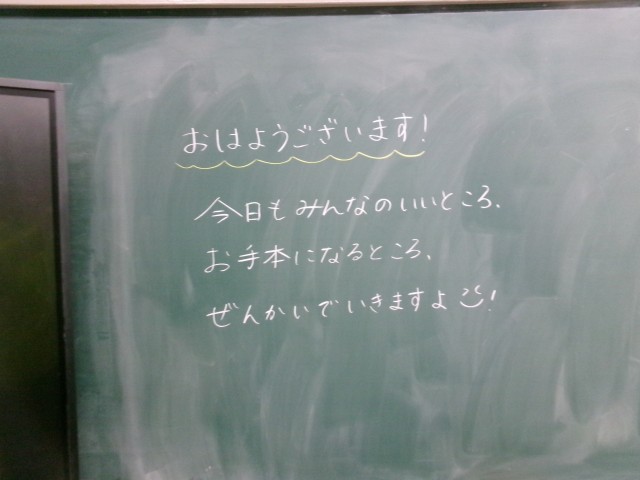 おはようございます!
今日もみんなのいいところ、
お手本になるところ、
ぜんかいでいきますよ!